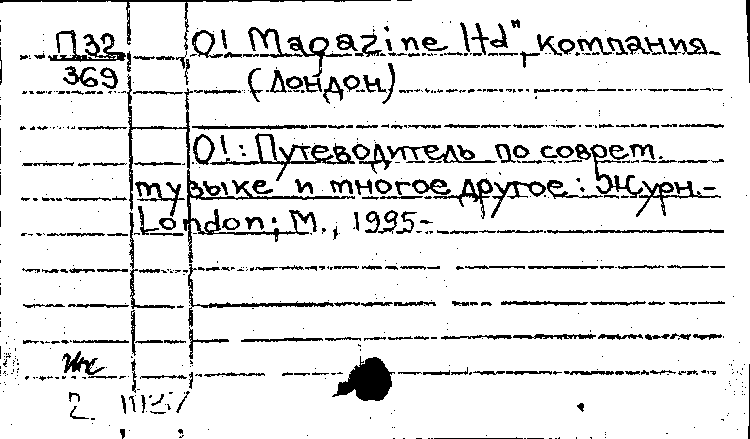 П32 O! Magazine ltd", компания
369 (Лондон)
O!: Путеводитель по соврем.
музыке и многое другое: Журн.-
London; М., 1995-